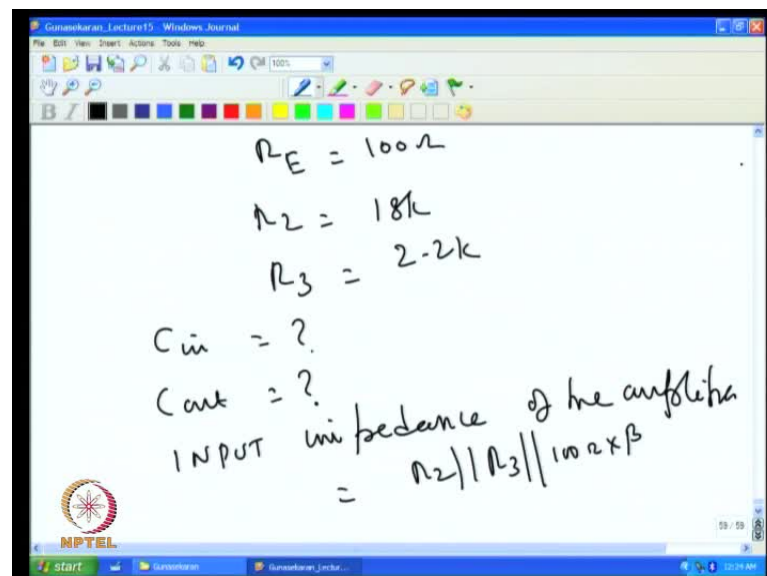 Gunasekaran_Lecture15 - Windows Journal
File Edit View Insert Actions Tools Help
100%
B I
R_E = 100Ω
R2 = 18k
R3 = 2.2k
Cin = ?
Cout = ?
INPUT impedance of the amplifier
= R2||R3||100Ω×β
NPTEL
59 / 59
start Gunasekaran Gunasekaran_Lectur... 12:24 AM